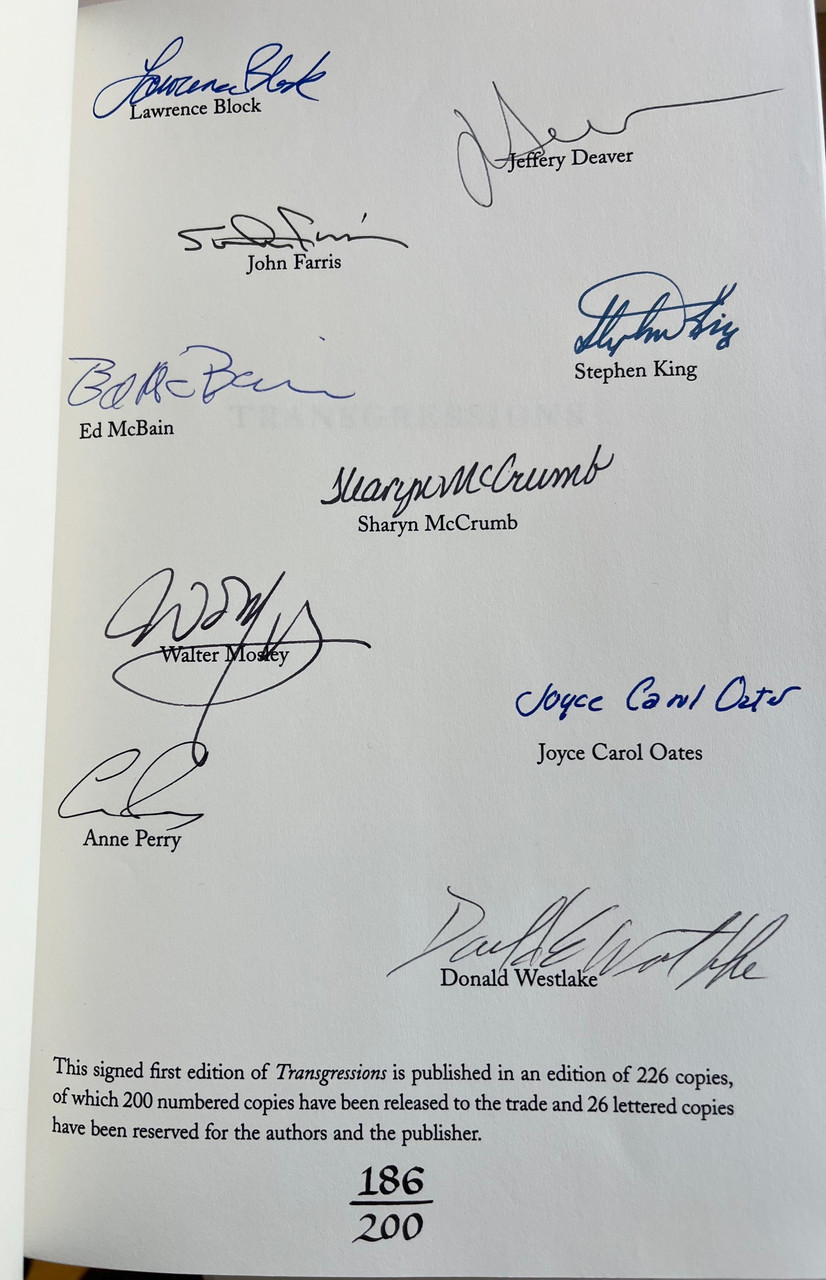 Lawrence Block
Lawrence Block
Jeffery Deaver
John Farris
Stephen King
Stephen King
Ed McBain
Ed McBain
TRANSGRESSIONS
Sharyn McCrumb
Sharyn McCrumb
Walter Mosley
Joyce Carol Oates
Joyce Carol Oates
Anne Perry
Donald E Westlake
Donald Westlake
This signed first edition of Transgressions is published in an edition of 226 copies,
of which 200 numbered copies have been released to the trade and 26 lettered copies
have been reserved for the authors and the publisher.
186
200